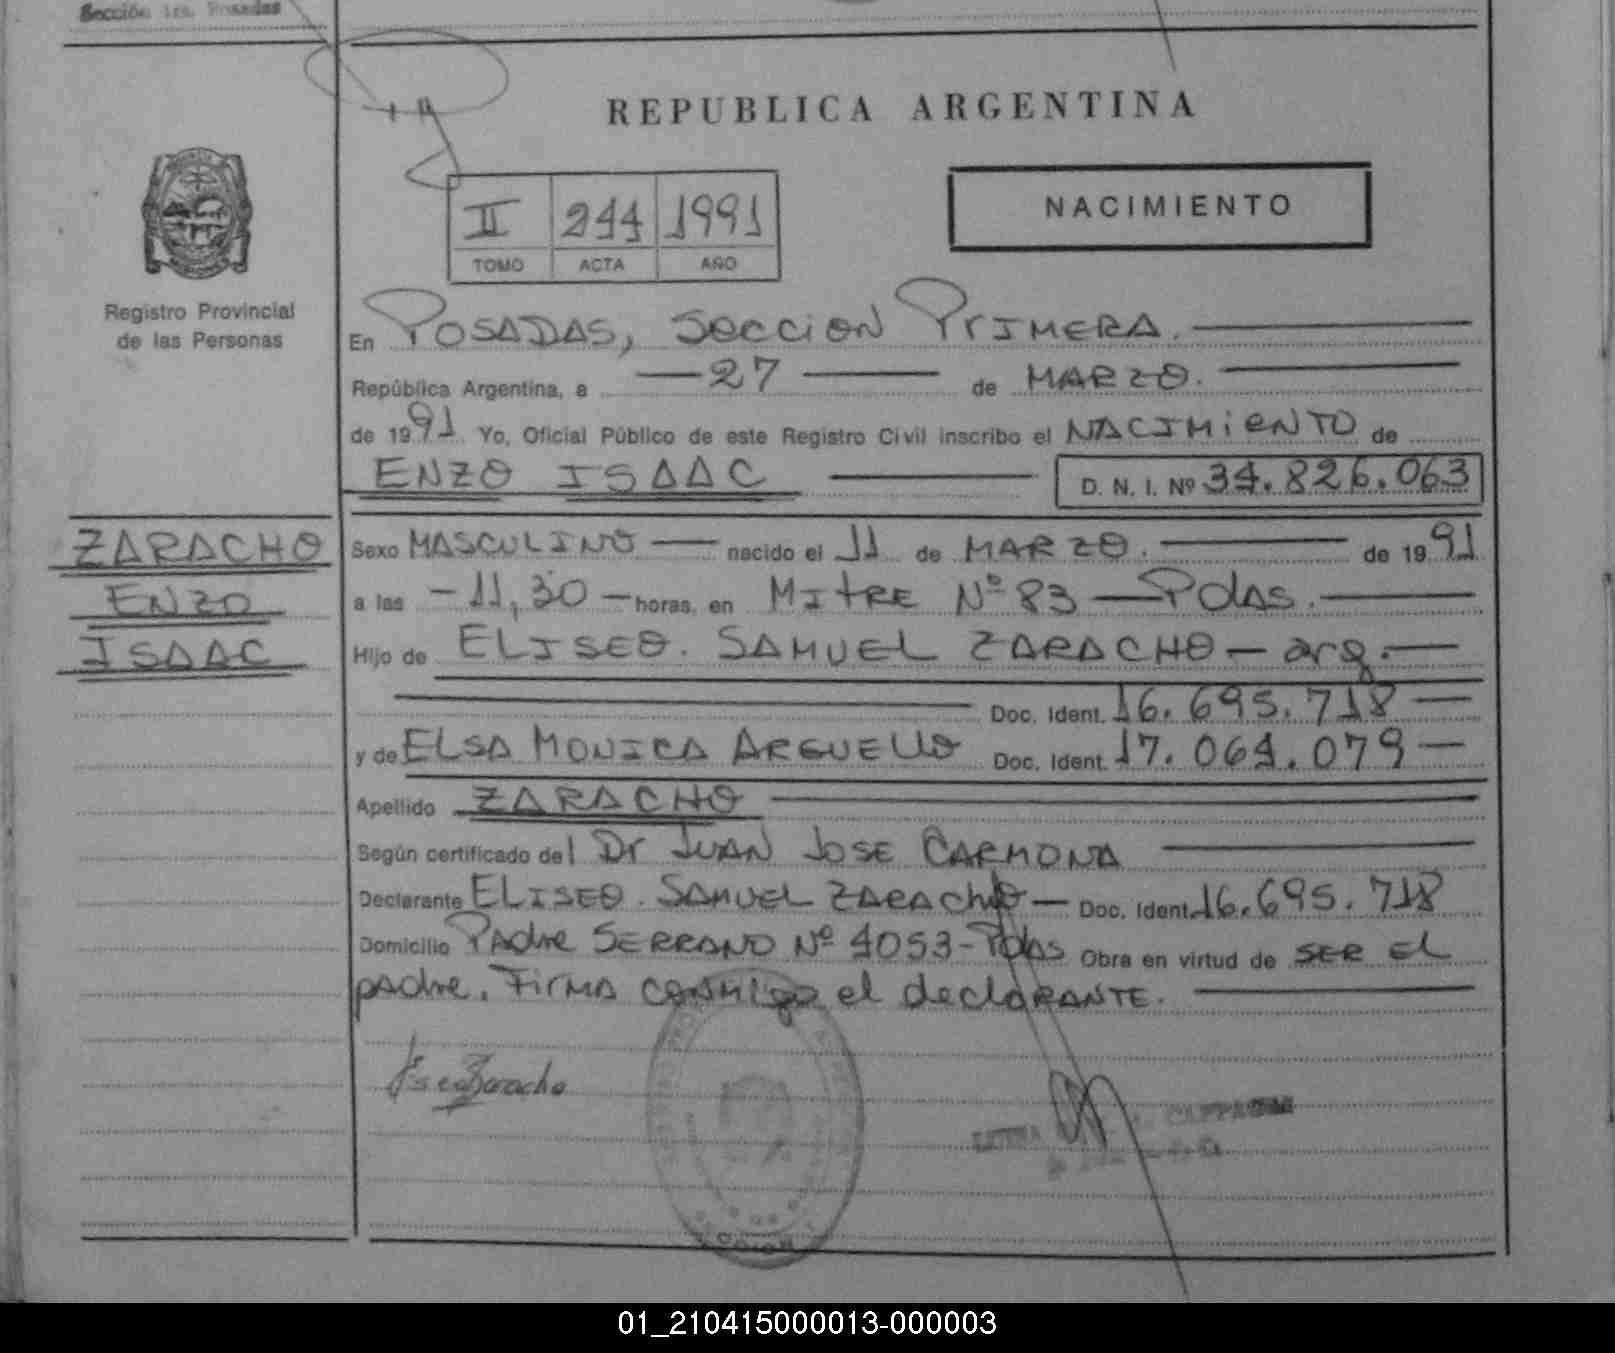 Sección 1ra. Posadas
REPUBLICA ARGENTINA
NACIMIENTO
II 244 1991
TOMO ACTA AÑO
Registro Provincial
de las Personas
En POSADAS, SECCION PRIMERA.
República Argentina, a 27 de MARZO.
de 1991 Yo, Oficial Público de este Registro Civil inscribo el NACIMIENTO de
ENZO ISAAC D. N. I. Nº 34.826.063
ZARACHO
ENZO
ISAAC
Sexo MASCULINO nacido el 11 de MARZO. de 1991
a las -11,30- horas, en MITRE Nº 83 - Pdas.
Hijo de ELISEO. SAMUEL ZARACHO - arg.-
Doc. Ident. 16.695.718
y de ELSA MONICA ARGUELLO Doc. Ident. 17.064.079
Apellido ZARACHO
Según certificado del Dr JUAN JOSE CARMONA
Declarante ELISEO. SAMUEL ZARACHO - Doc. Ident. 16.695.718
Domicilio PADRE SERRANO Nº 4053 - Pdas Obra en virtud de SER EL
padre. FIRMA CONMIGO el declARANTE.
01_210415000013-000003